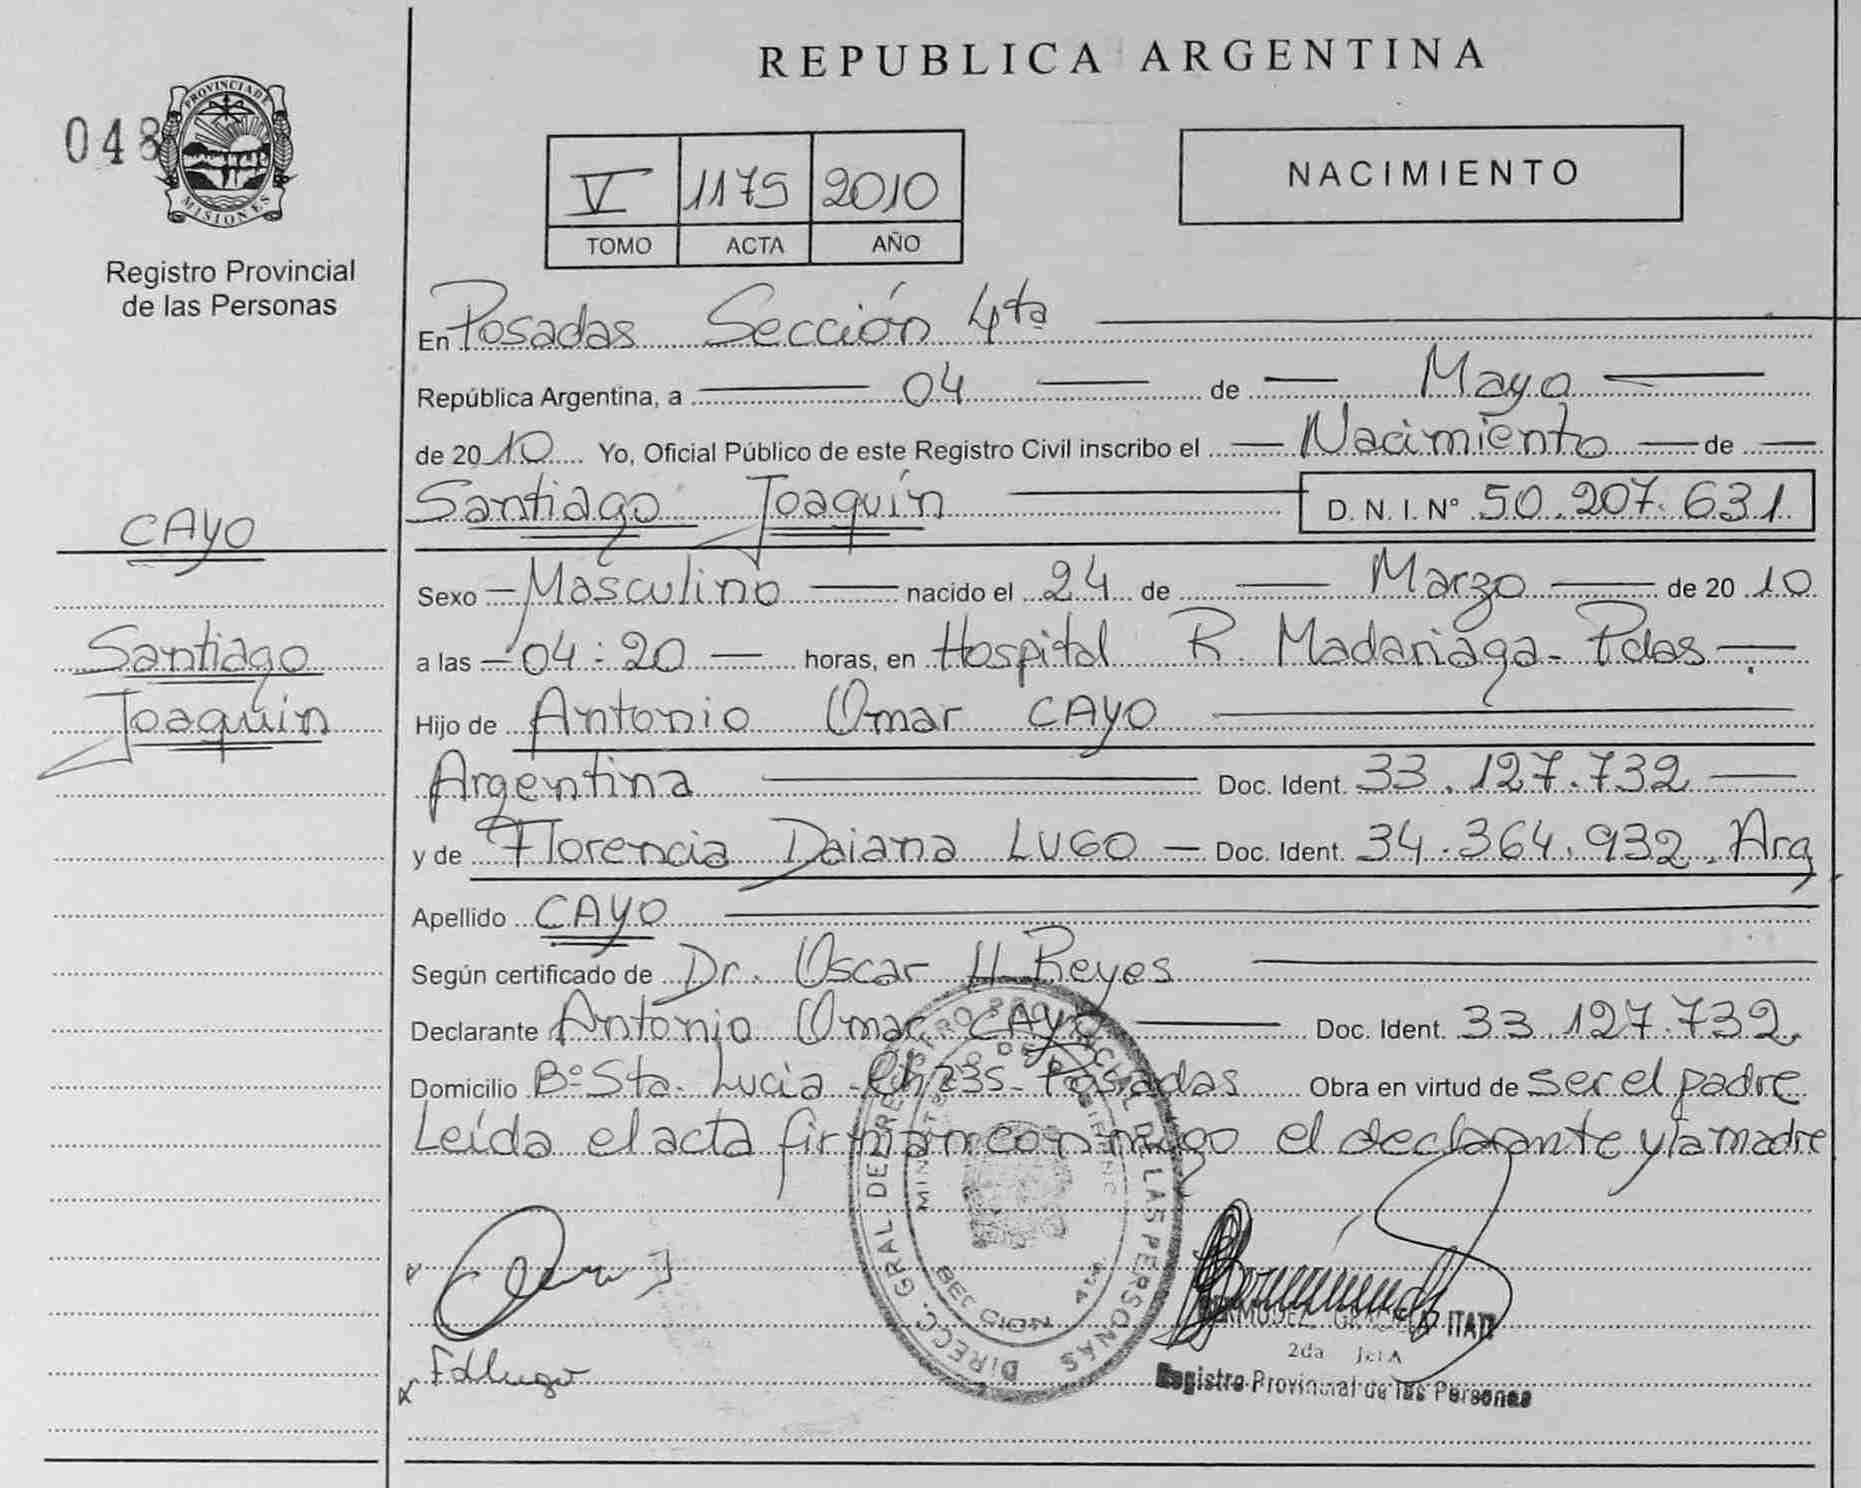 REPUBLICA ARGENTINA
048
PROVINCIA DE
MISIONES
Registro Provincial
de las Personas
V 1175 2010
TOMO ACTA AÑO
NACIMIENTO
En Posadas Sección 4ta
República Argentina, a 04 de Mayo
de 2010 Yo, Oficial Público de este Registro Civil inscribo el Nacimiento de
Santiago Joaquín D. N. I. Nº 50.207.631
CAYO
Santiago
Joaquín
Sexo Masculino nacido el 24 de Marzo de 2010
a las 04:20 horas, en Hospital R. Madariaga - Pdas.
Hijo de Antonio Omar CAYO
Argentina Doc. Ident. 33.127.732
y de Florencia Daiana LUGO Doc. Ident. 34.364.932. Arg
Apellido CAYO
Según certificado de Dr. Oscar H. Reyes
Declarante Antonio Omar CAYO Doc. Ident. 33.127.732.
Domicilio Bº Sta. Lucia Posadas Obra en virtud de ser el padre
Leída el acta firman conmigo el declarante y la madre
DIRECC. GRAL DE REGISTRO PROVINCIAL DE LAS PERSONAS
FdLugo
BERMUDEZ, GRACIELA ITATI
2da Jefa
Registro Provincial de las Personas